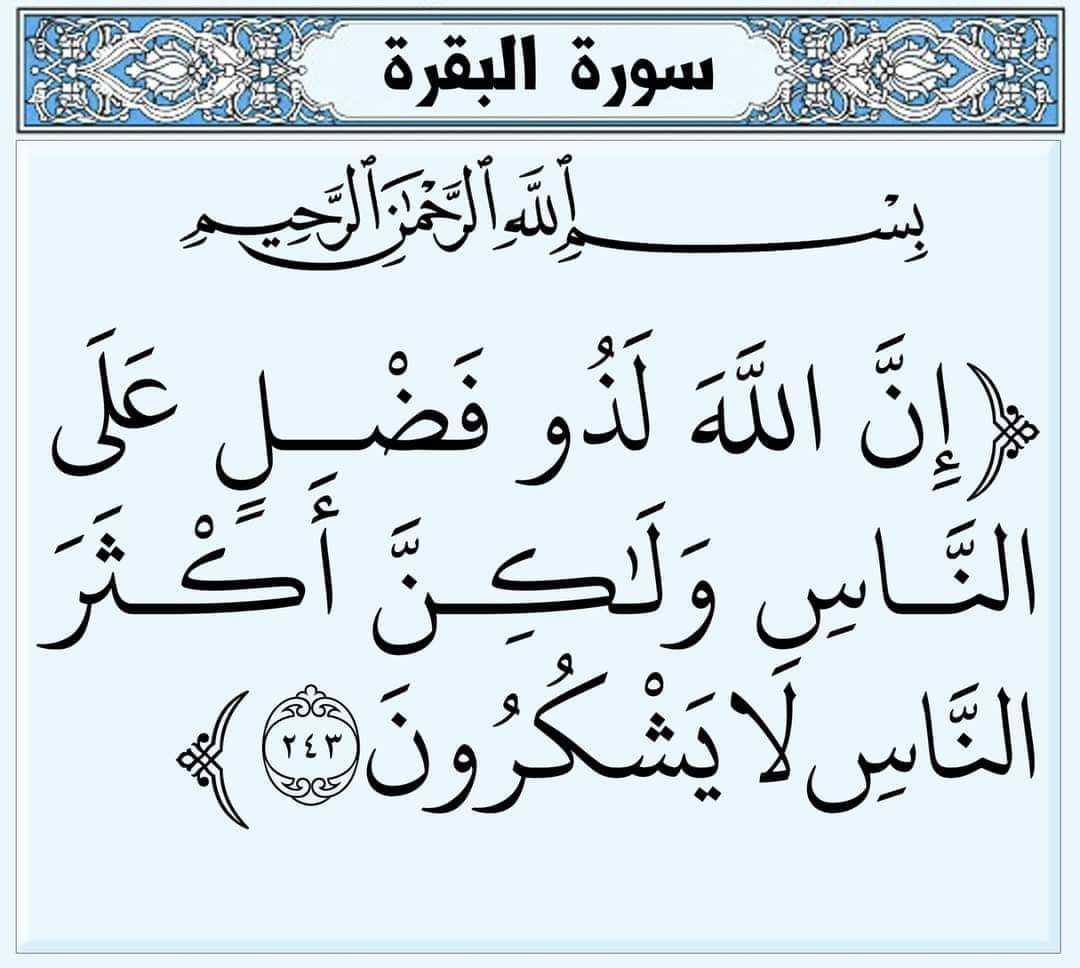 سورة البقرة
بِسْمِ ٱللَّهِ ٱلرَّحْمَٰنِ ٱلرَّحِيمِ
﴿إِنَّ اللَّهَ لَذُو فَضْلٍ عَلَى
النَّاسِ وَلَٰكِنَّ أَكْثَرَ
النَّاسِ لَا يَشْكُرُونَ ٢٤٣﴾